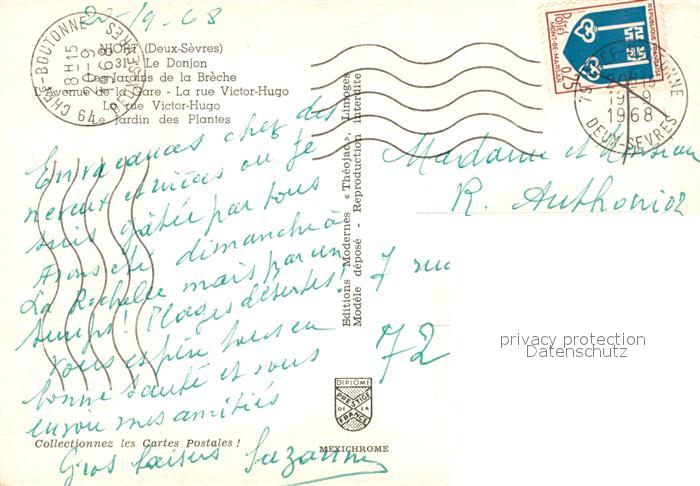 22/9-68
NIORT (Deux-Sèvres)
31 Le Donjon
Les Jardins de la Brèche
L'Avenue de la Gare - La rue Victor-Hugo
La rue Victor-Hugo
Le Jardin des Plantes
CHEF-BOUTONNE
18H15
20-9
1968
79 DEUX SEVRES
POSTES
REPUBLIQUE FRANCAISE
MONT-DE-MARSAN
0,15
CHEF-BOUTONNE
20H15
19-9
1968
DEUX-SEVRES
En vacances chez des
neveux et nièces où je
suis gâtée par tous
Avons été dimanche à
La Rochelle mais par un
temps! Plages désertes!
Vous espère tous en
bonne santé et vous
envoie mes amitiés
Gros baisers Suzanne
Editions Modernes « Théojac », Limoges
Modèle déposé - Reproduction interdite
Madame et Monsieur
R. Authonioz
7 rue
72
privacy protection
Datenschutz
DIPLOME
PRESTIGE
DE LA
FRANCE
Collectionnez les Cartes Postales !
MEXICHROME